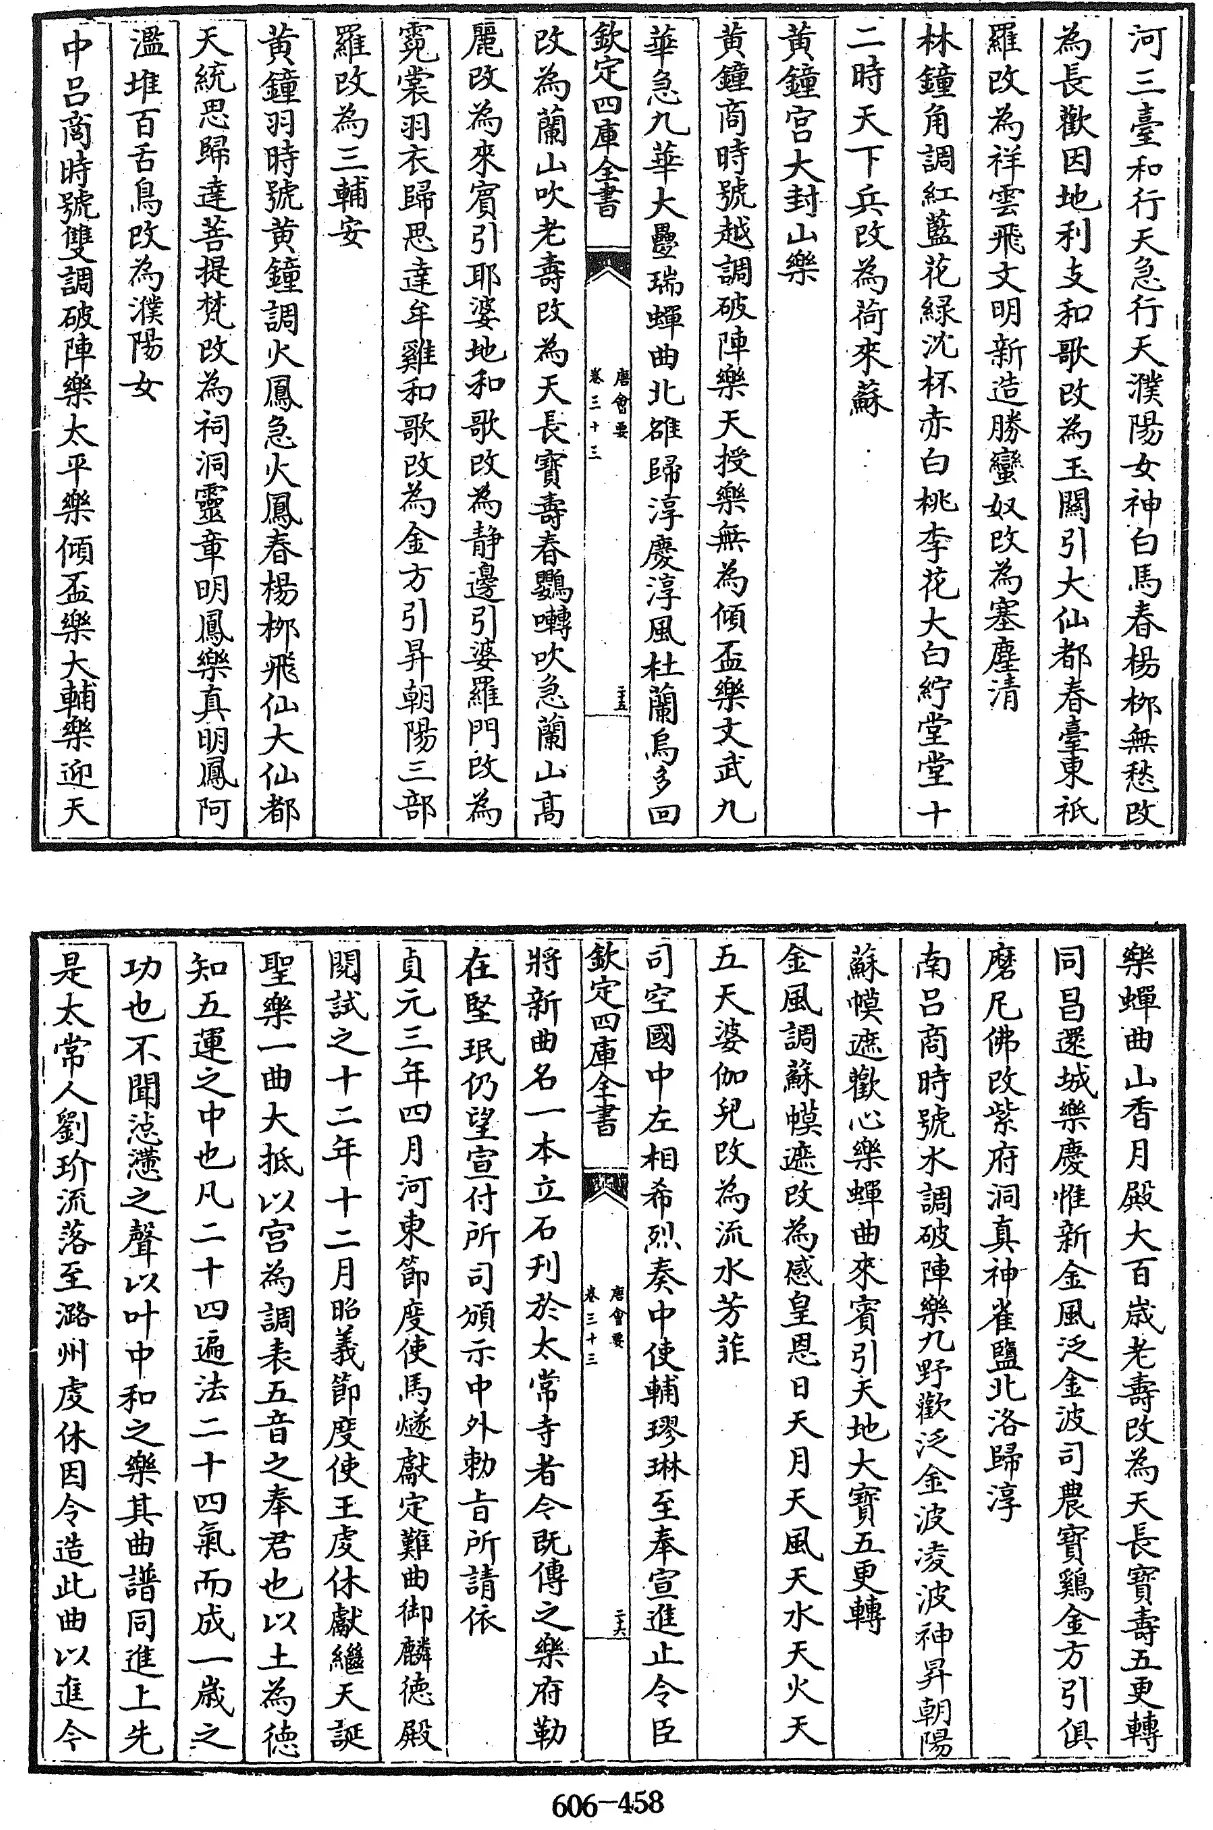 河三臺和行天急行天濮陽女神白馬春楊栁無愁改
為長歡因地利支和歌改為玉關引大仙都春臺東祇
羅改為祥雲飛文明新造勝蠻奴改為塞塵清
林鐘角調紅藍花緑沈杯赤白桃李花大白紵堂堂十
二時天下兵改為荷來蘇
黄鐘宫大封山樂
黄鐘商時號越調破陣樂天授樂無為傾盃樂文武九
華急九華大疊瑞蟬曲北雒歸淳慶淳風杜蘭烏多回
欽定四庫全書
唐會要
卷三十三
二十五
改為蘭山吹老壽改為天長寶壽春鸎囀吹急蘭山髙
麗改為來賓引耶婆地和歌改為靜邊引婆羅門改為
霓裳羽衣歸思達牟雞和歌改為金方引昇朝陽三部
羅改為三輔安
黄鐘羽時號黄鐘調火鳳急火鳳春楊栁飛仙大仙都
天統思歸達菩提梵改為祠洞靈章明鳳樂真明鳳阿
濫堆百舌鳥改為濮陽女
中吕商時號雙調破陣樂太平樂傾盃樂大輔樂迎天
樂蟬曲山香月殿大百歲老壽改為天長寶壽五更轉
同昌還城樂慶惟新金風泛金波司農寶鷄金方引俱
磨尼佛改紫府洞真神雀鹽北洛歸淳
南吕商時號水調破陣樂九野歡泛金波凌波神昇朝陽
蘇幙遮歡心樂蟬曲來賓引天地大寶五更轉
金風調蘇幙遮改為感皇恩日天月天風天水天火天
五天婆伽兒改為流水芳菲
司空國中左相希烈奏中使輔璆琳至奉宣進止令臣
欽定四庫全書
唐會要
卷三十三
二十六
將新曲名一本立石刊於太常寺者今既傳之樂府勒
在堅珉仍望宣付所司頒示中外勅旨所請依
貞元三年四月河東節度使馬燧獻定難曲御麟徳殿
閱試之十二年十二月昭義節度使王䖍休獻繼天誕
聖樂一曲大抵以宫為調表五音之奉君也以土為徳
知五運之中也凡二十四遍法二十四氣而成一歲之
功也不聞惉懘之聲以叶中和之樂其曲譜同進上先
是太常人劉玠流落至潞州䖍休因令造此曲以進今
606-458